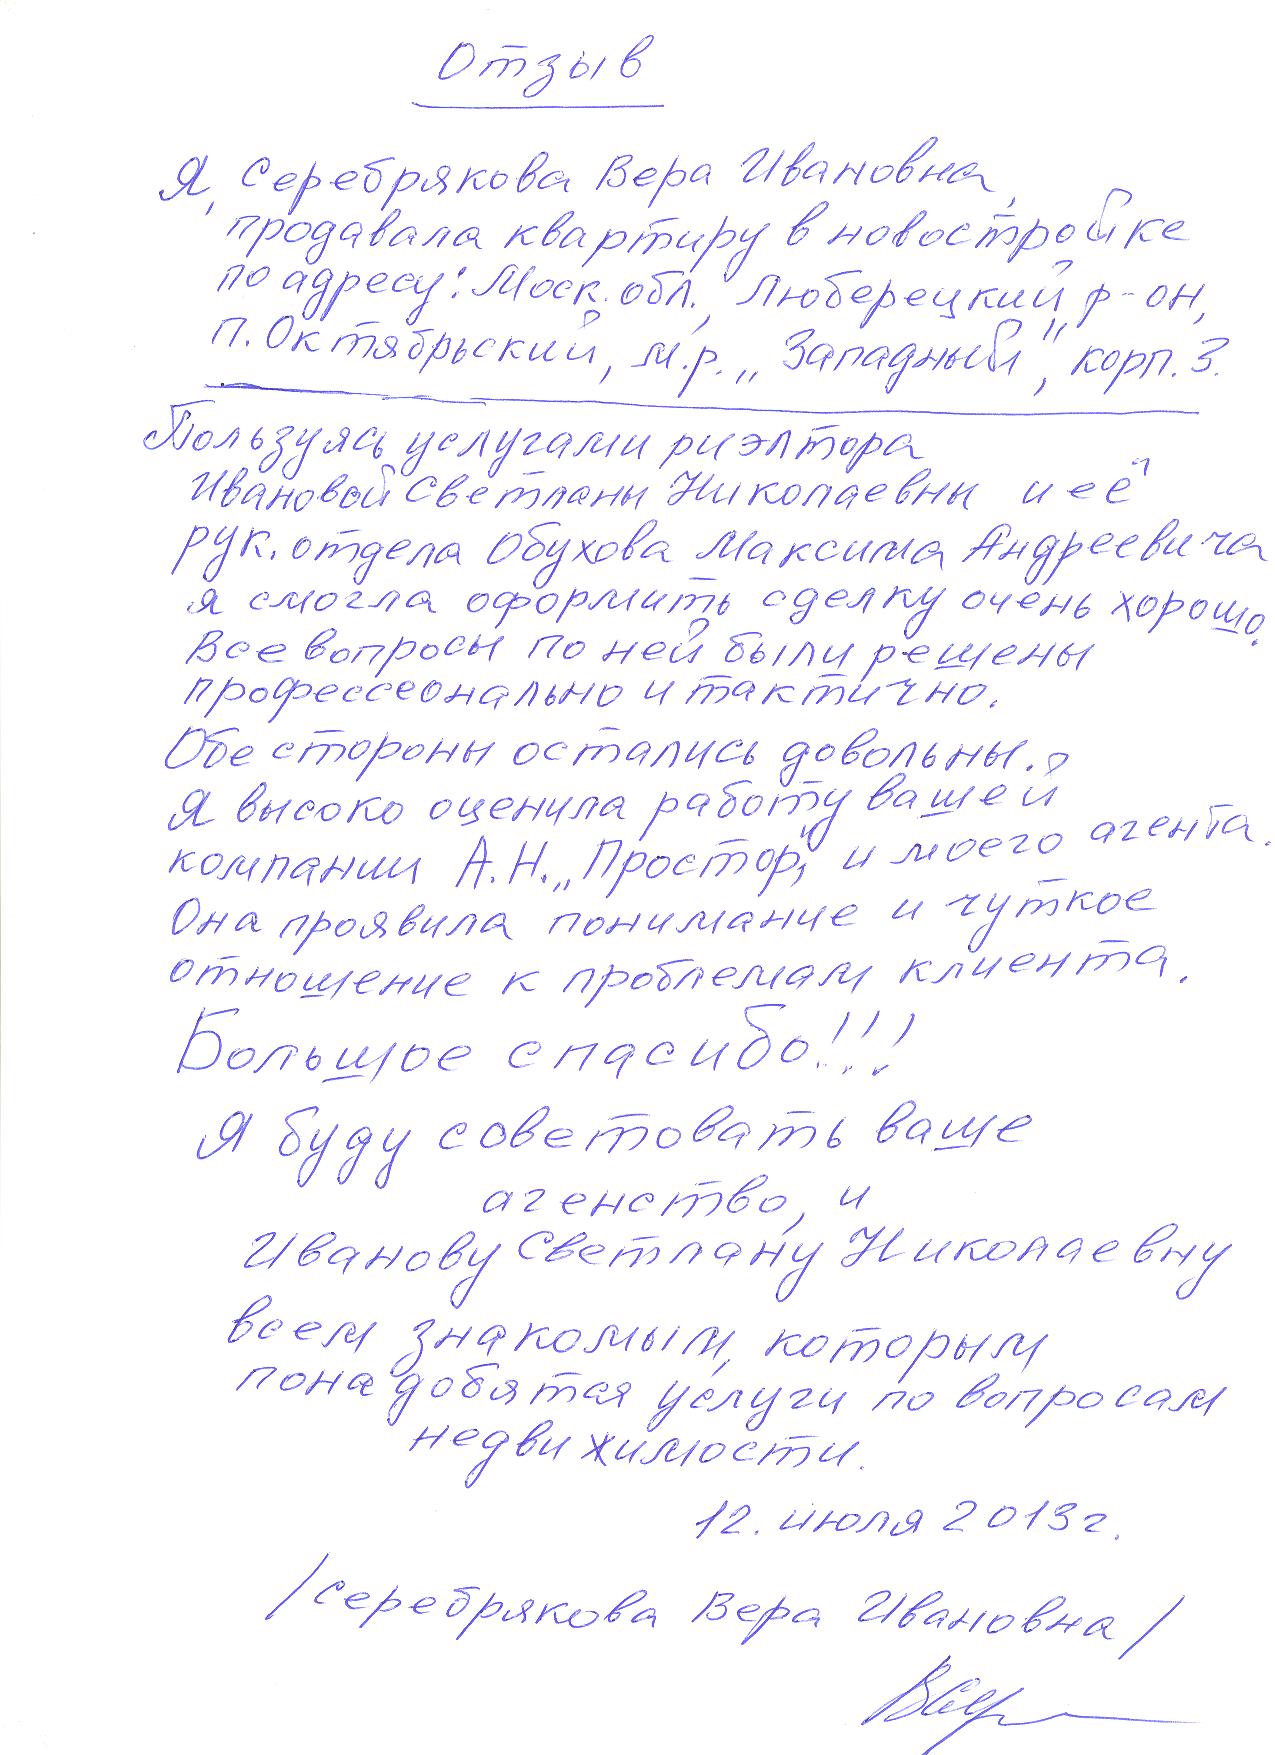 Отзыв
Я, Серебрякова Вера Ивановна,
продавала квартиру в новостройке
по адресу: Моск. обл., Люберецкий р-он,
п. Октябрьский, м.р. „Западный", корп. 3.
Пользуясь услугами риэлтора
Ивановой Светланы Николаевны и её
рук. отдела Обухова Максима Андреевича
я смогла оформить сделку очень хорошо.
Все вопросы по ней были решены
профессеонально и тактично.
Обе стороны остались довольны.
Я высоко оценила работу вашей
компании А.Н. „Простор", и моего агента.
Она проявила понимание и чуткое
отношение к проблемам клиента.
Большое спасибо!!!
Я буду советовать ваше
агенство, и
Иванову Светлану Николаевну
всем знакомым, которым
понадобятся услуги по вопросам
недвижимости.
12. июля 2013г.
/Серебрякова Вера Ивановна/